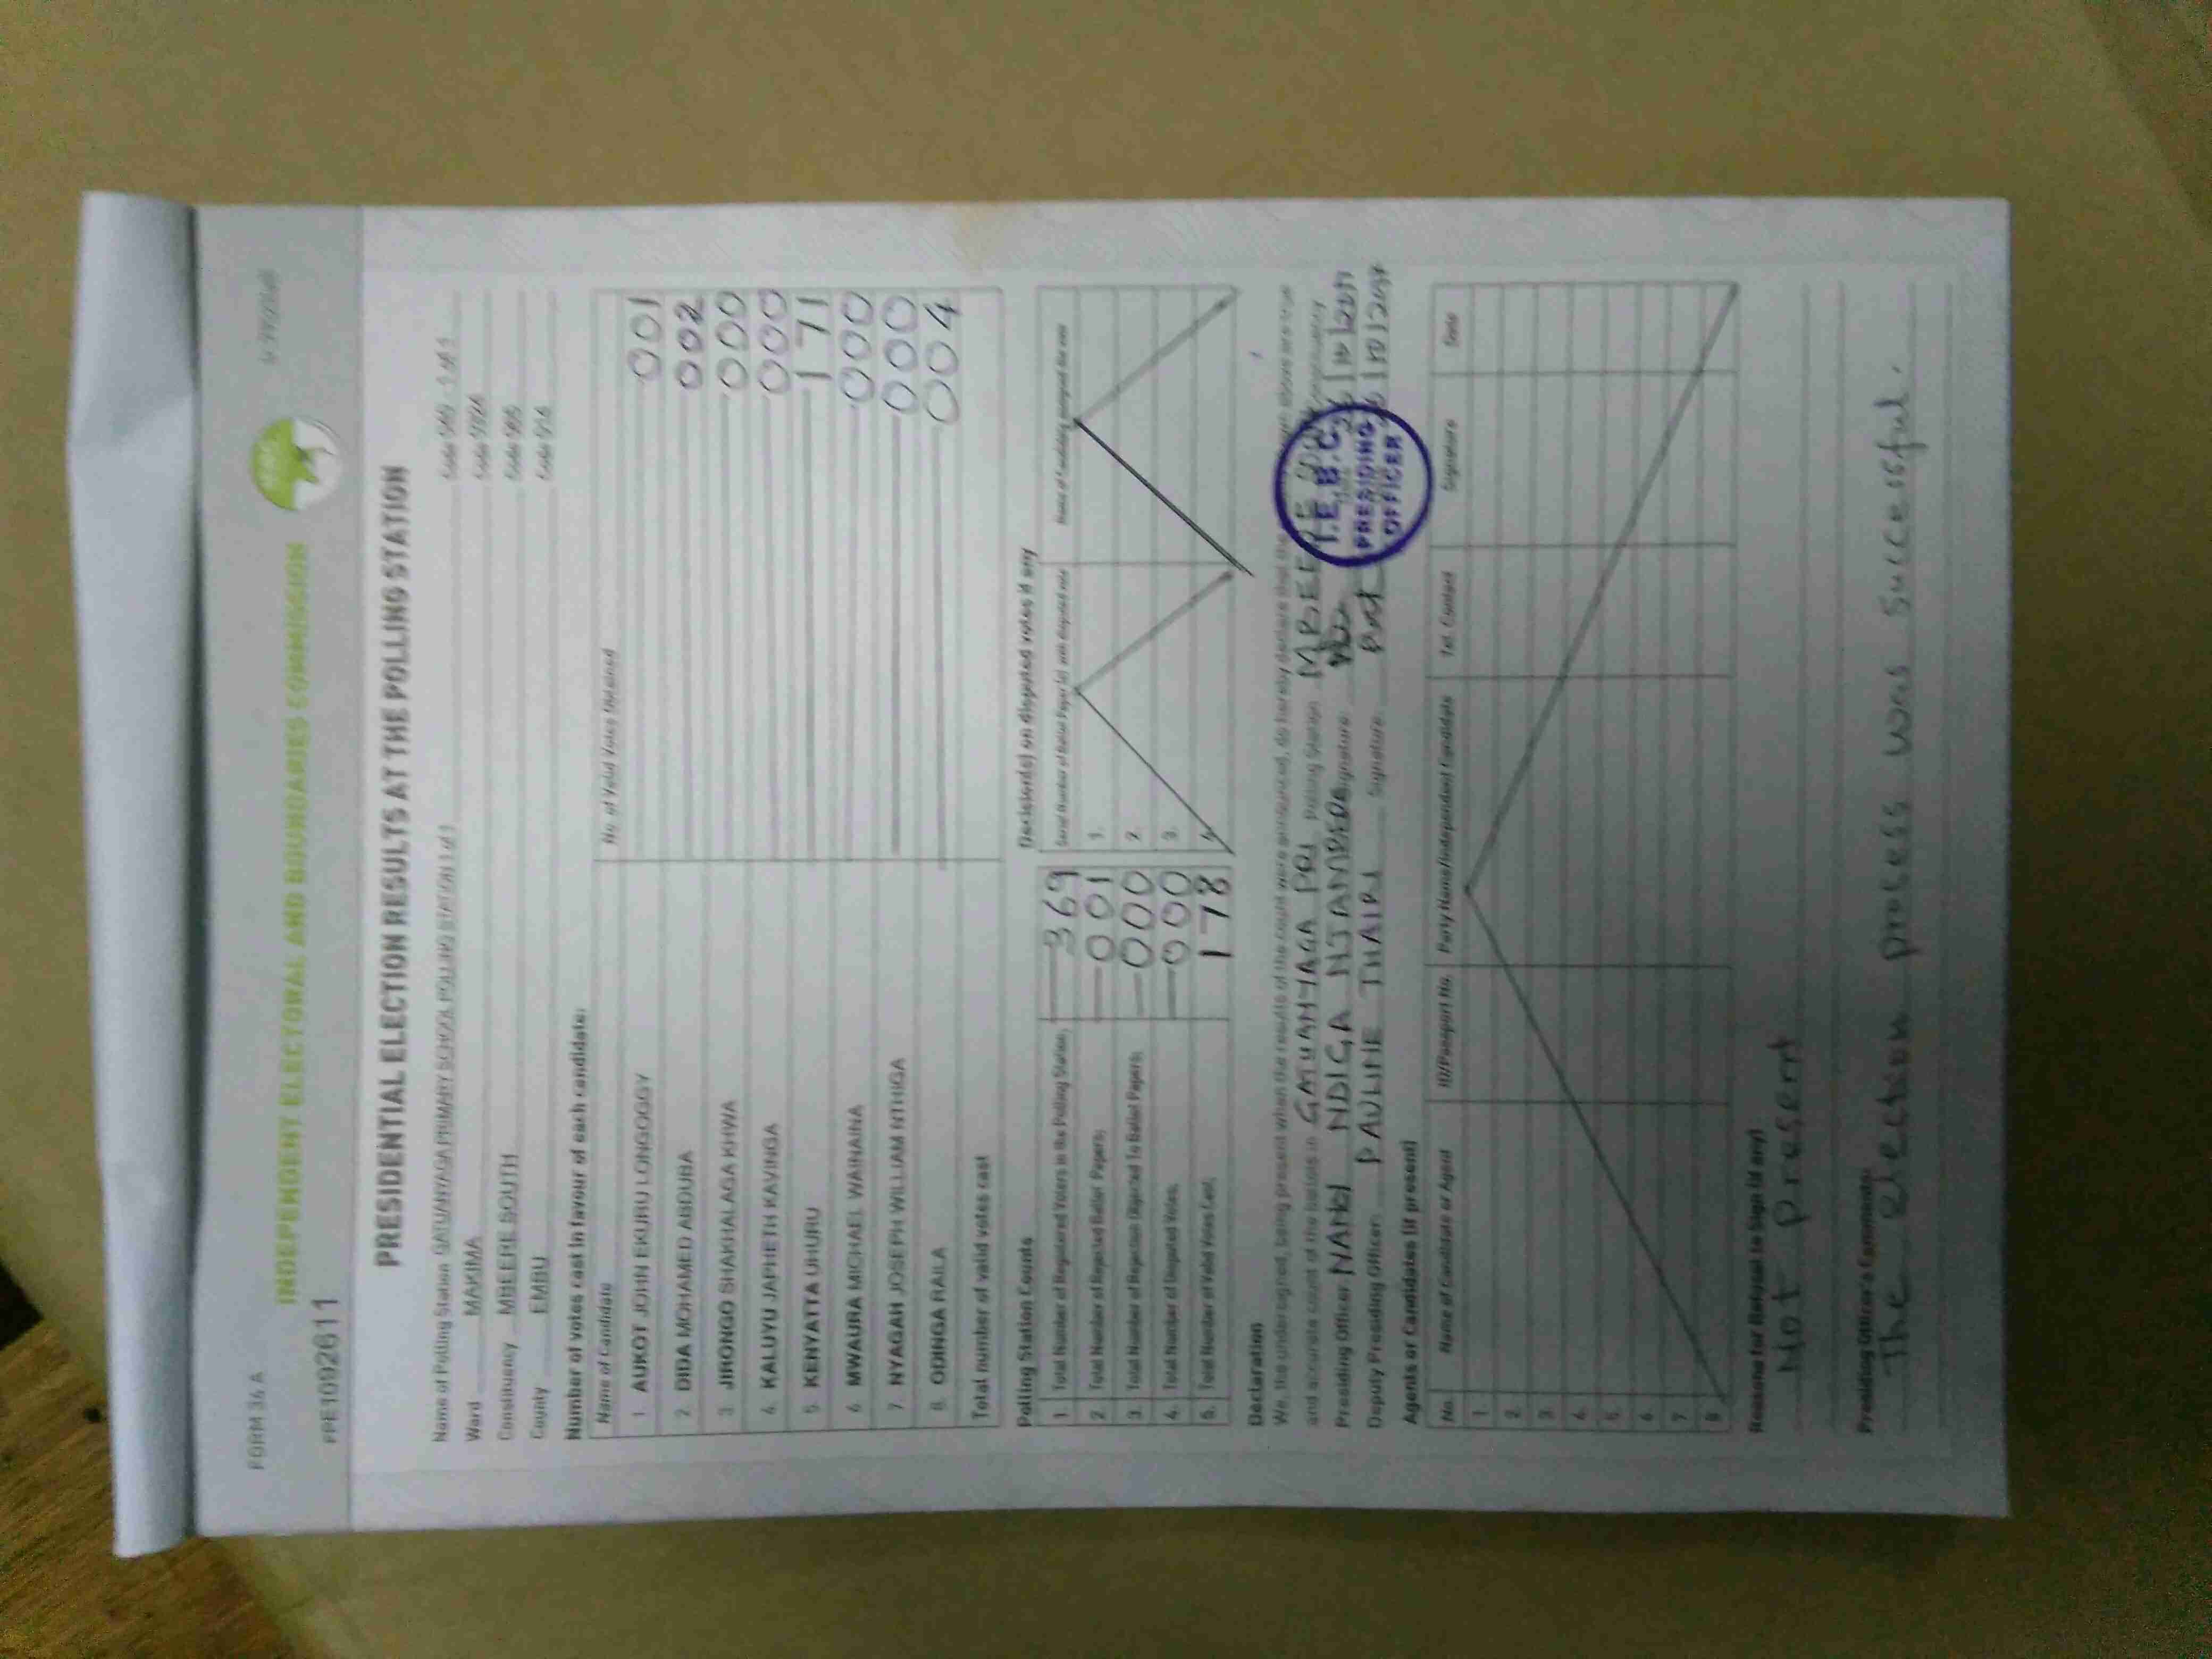 FORM 36 A
INDEPENDENT ELECTORAL AND BOUNDARIES COMMISSION
PRE1092611
PRESIDENTIAL ELECTION RESULTS AT THE POLLING STATION
Name of Polling Station GATUANYAGA PRIMARY SCHOOL POLLING STATION 1 of 1 Code 049 - 1 of 1
Ward MAKIMA Code
Constituency MBEERE SOUTH Code
County EMBU Code 014
Number of votes cast in favour of each candidate:
Name of Candidate No. of Valid Votes Obtained
1. AUKOT JOHN EKURU LONGOGGY 001
2. DIDA MOHAMED ABDUBA 002
3. JIRONGO SHAKHALAGA KHWA 000
4. KALUYU JAPHETH KAVINGA 000
5. KENYATTA UHURU 171
6. MWAURA MICHAEL WAINAINA 000
7. NYAGAH JOSEPH WILLIAM NTHIGA 000
8. ODINGA RAILA 004
Total number of valid votes cast
Polling Station Counts
1. Total Number of Registered Voters in the Polling Station; 369
2. Total Number of Rejected Ballot Papers; 001
3. Total Number of Rejection Objected To Ballot Papers; 000
4. Total Number of Disputed Votes; 000
5. Total Number of Valid Votes Cast; 178
Decision(s) on disputed votes if any
Serial Number of Ballot Paper(s) with disputed vote Name of Candidate awarded the vote
1.
2.
3.
4.
Declaration
We, the undersigned, being present when the results of the count were announced, do hereby declare that the results shown above are true
and accurate count of the ballots in GATUANYAGA PRI Polling Station MBEERE SOUTH Constituency
Presiding Officer NANCY NDIGA Signature 26/10/2017
Deputy Presiding Officer PAULINE THAIRU Signature 26/10/2017
I.E.B.C.
PRESIDING
OFFICER
Agents or Candidates (if present)
No. Name of Candidate or Agent ID/Passport No. Party Name/Independent Candidate Tel. Contact Signature Date
1.
2.
3.
4.
5.
6.
7.
8.
Reasons for Refusal to Sign (if any)
Not Present
Presiding Officer's Comments:
The election process was successful.